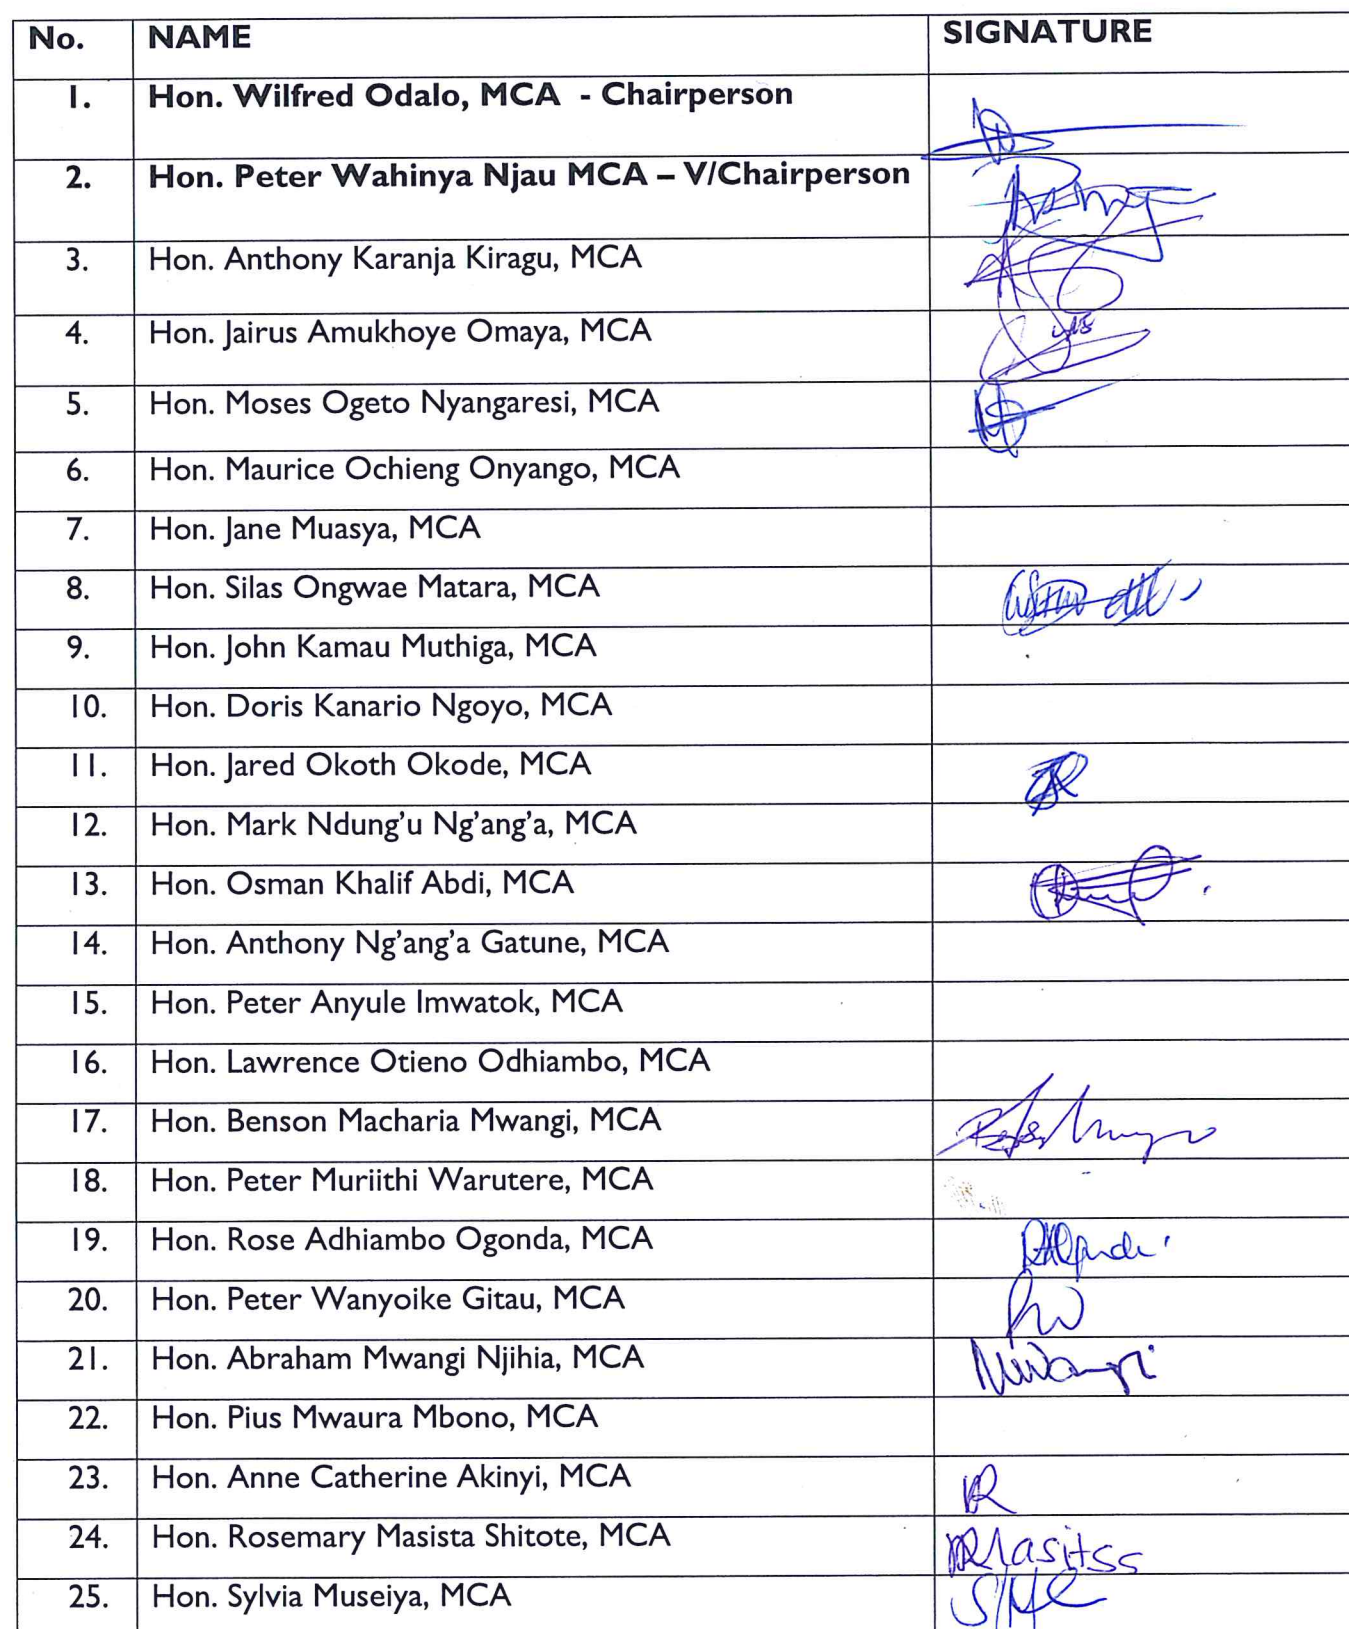 No. NAME SIGNATURE
1. Hon. Wilfred Odalo, MCA - Chairperson
2. Hon. Peter Wahinya Njau MCA – V/Chairperson
3. Hon. Anthony Karanja Kiragu, MCA
4. Hon. Jairus Amukhoye Omaya, MCA
5. Hon. Moses Ogeto Nyangaresi, MCA
6. Hon. Maurice Ochieng Onyango, MCA
7. Hon. Jane Muasya, MCA
8. Hon. Silas Ongwae Matara, MCA
9. Hon. John Kamau Muthiga, MCA
10. Hon. Doris Kanario Ngoyo, MCA
11. Hon. Jared Okoth Okode, MCA
12. Hon. Mark Ndung’u Ng’ang’a, MCA
13. Hon. Osman Khalif Abdi, MCA
14. Hon. Anthony Ng’ang’a Gatune, MCA
15. Hon. Peter Anyule Imwatok, MCA
16. Hon. Lawrence Otieno Odhiambo, MCA
17. Hon. Benson Macharia Mwangi, MCA
18. Hon. Peter Muriithi Warutere, MCA
19. Hon. Rose Adhiambo Ogonda, MCA
20. Hon. Peter Wanyoike Gitau, MCA
21. Hon. Abraham Mwangi Njihia, MCA Mwangi
22. Hon. Pius Mwaura Mbono, MCA
23. Hon. Anne Catherine Akinyi, MCA
24. Hon. Rosemary Masista Shitote, MCA
25. Hon. Sylvia Museiya, MCA